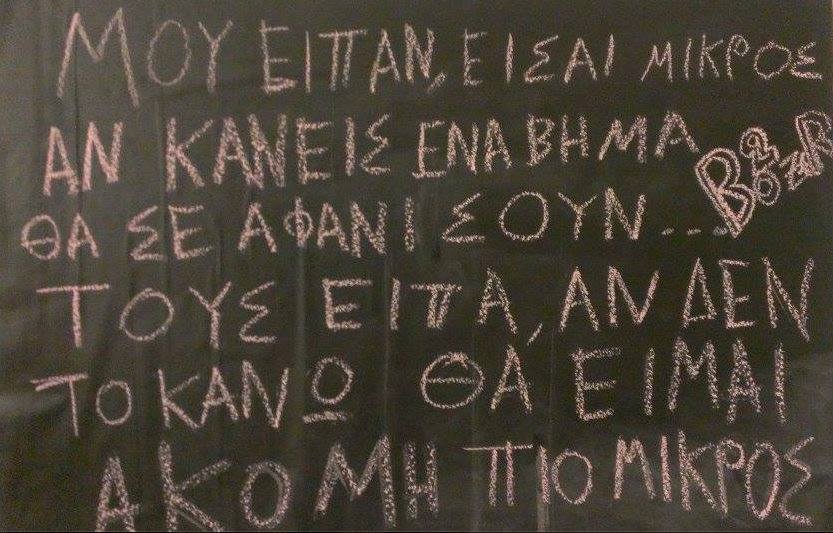 ΜΟΥ ΕΙΠΑΝ, ΕΙΣΑΙ ΜΙΚΡΟΣ
ΑΝ ΚΑΝΕΙΣ ΕΝΑ ΒΗΜΑ
ΘΑ ΣΕ ΑΦΑΝΙΣΟΥΝ...
ΤΟΥΣ ΕΙΠΑ, ΑΝ ΔΕΝ
ΤΟ ΚΑΝΩ ΘΑ ΕΙΜΑΙ
ΑΚΟΜΗ ΠΙΟ ΜΙΚΡΟΣ